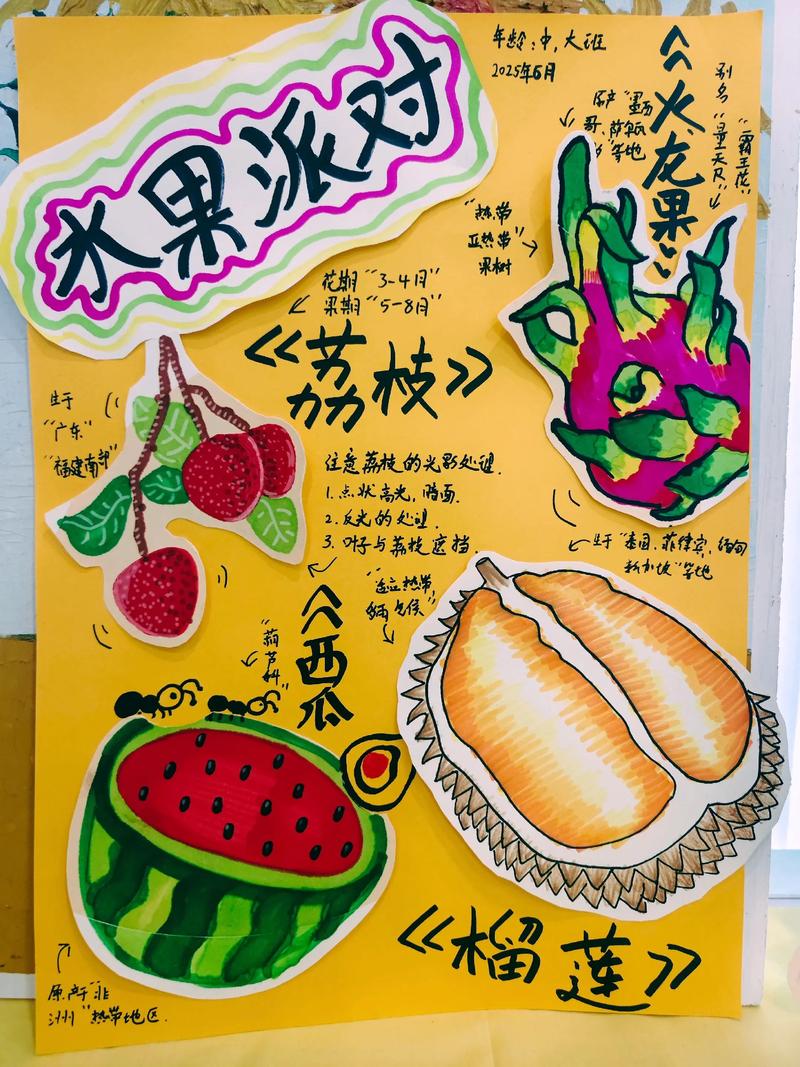 水果派对
年龄:中,大班
2025年6月
《火龙果》
别名
"霸王花"
"量天尺"
原产"墨西
哥、萨尔瓦
多"等地
"热带
亚热带"
果树
花期"3-4月"
果期"5-8月"
《荔枝》
生于
"广东"
"福建南部"
注意荔枝的光影处理.
1.点状高光,暗面.
2.反光的处理.
3.叶子与荔枝遮挡.
生于"泰国、菲律宾、缅甸
新加坡"等地
"适应热带,
多雨气候"
《西瓜
"葫芦科"
原产于"非
洲"热带地区.
《榴莲》